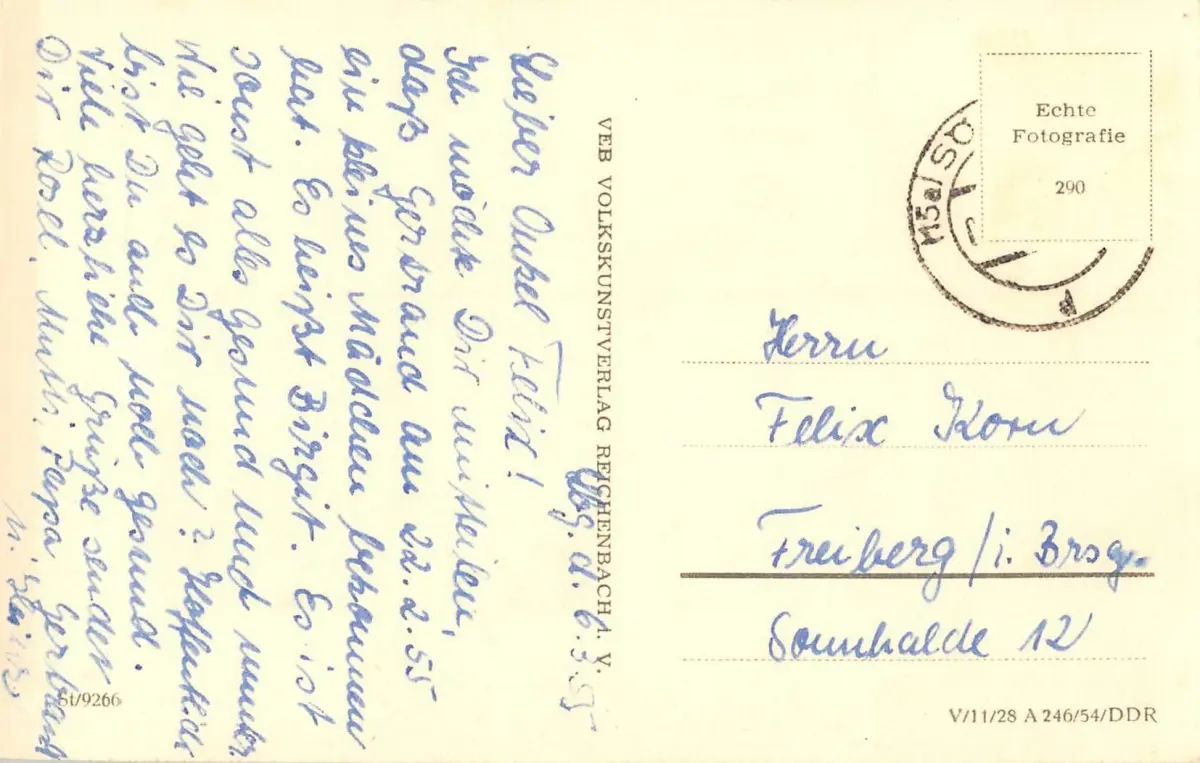 Sbg. d. 6.3.55
Lieber Onkel Felix!
Ich möchte Dir mitteilen,
daß Gertraud am 22.2.55
ein kleines Mädchen bekommen
hat. Es heißt Birgit. Es ist
sonst alles gesund und munter.
Wie geht es Dir noch? Hoffentlich
bist Du auch noch gesund.
Viele herzliche Grüße sendet
Dir Rosel, Mutti, Papa, Gerhard
u.
VEB VOLKSKUNSTVERLAG REICHENBACH i. V.
St/9266
Echte
Fotografie
290
M5a) SO
d
Herrn
Felix Korn
Freiberg / i. Brsg.
Sonnhalde 12
V/11/28 A 246/54/DDR